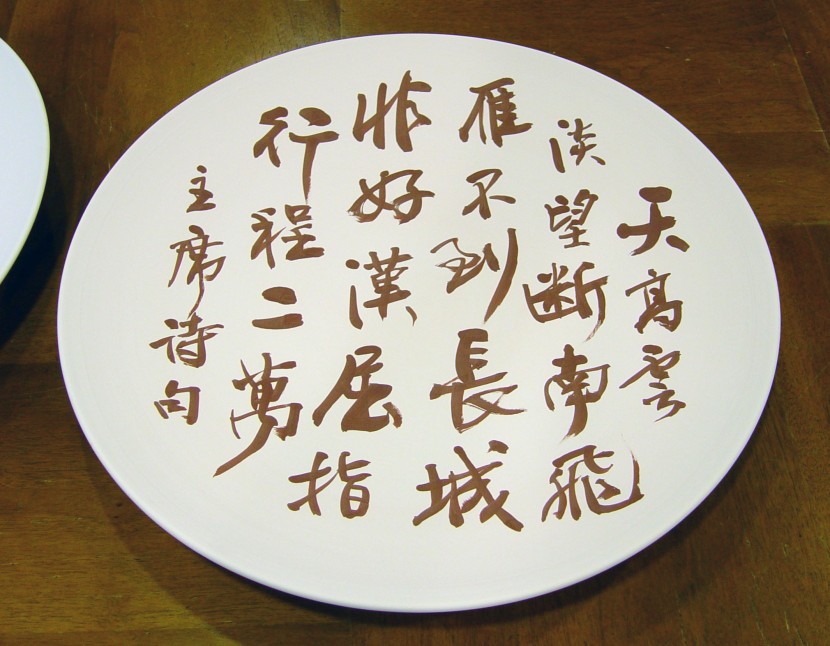 天高雲
淡望断南飛
雁不到長城
非好漢屈指
行程二萬
主席诗句